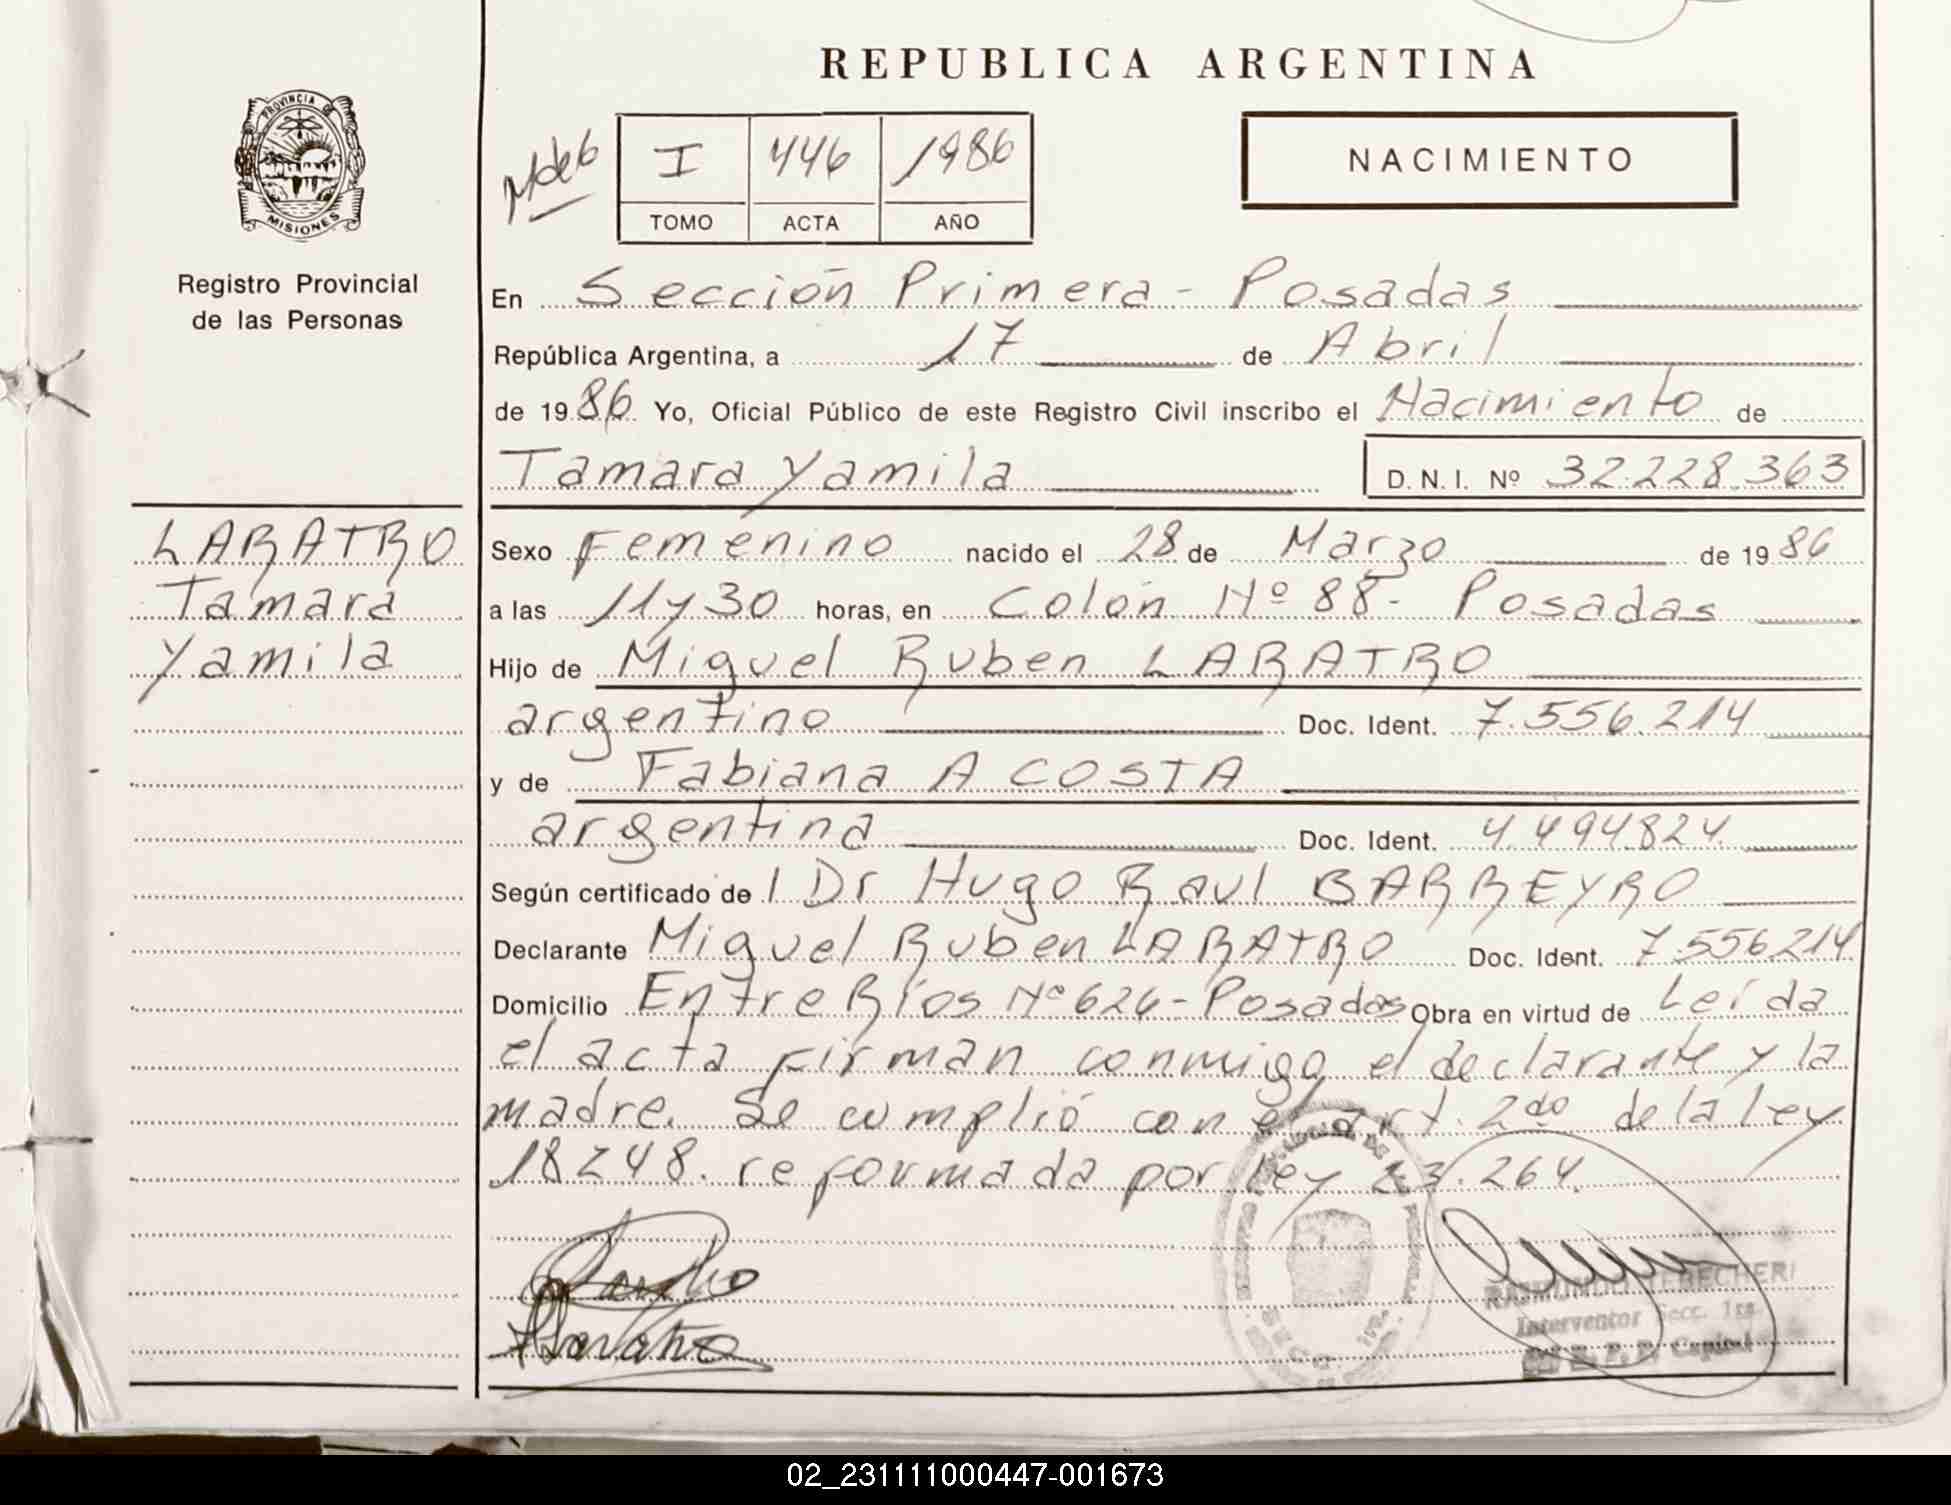 REPUBLICA ARGENTINA
PROVINCIA DE
MISIONES
Registro Provincial
de las Personas
I 446 1986
TOMO ACTA AÑO
NACIMIENTO
En Sección Primera - Posadas
República Argentina, a 17 de Abril
de 1986 Yo, Oficial Público de este Registro Civil inscribo el Nacimiento de
Tamara Yamila D.N.I. Nº 32.228.363
LARATRO
Tamara
Yamila
Sexo Femenino nacido el 28 de Marzo de 1986
a las 11 y 30 horas, en Colón Nº 88- Posadas
Hijo de Miguel Ruben LARATRO
argentino Doc. Ident. 7.556.214
y de Fabiana ACOSTA
argentina Doc. Ident. 4.494.824.
Según certificado de l Dr Hugo Raul BARREYRO
Declarante Miguel Ruben LARATRO Doc. Ident. 7.556.214
Domicilio Entre Ríos Nº 626- Posadas Obra en virtud de Leída
el acta firman conmigo el declarante y la
madre. Se cumplió con el art. 2do de la ley
18248. reformada por ley 23.264.
Interventor Secc. 1ra
02_231111000447-001673